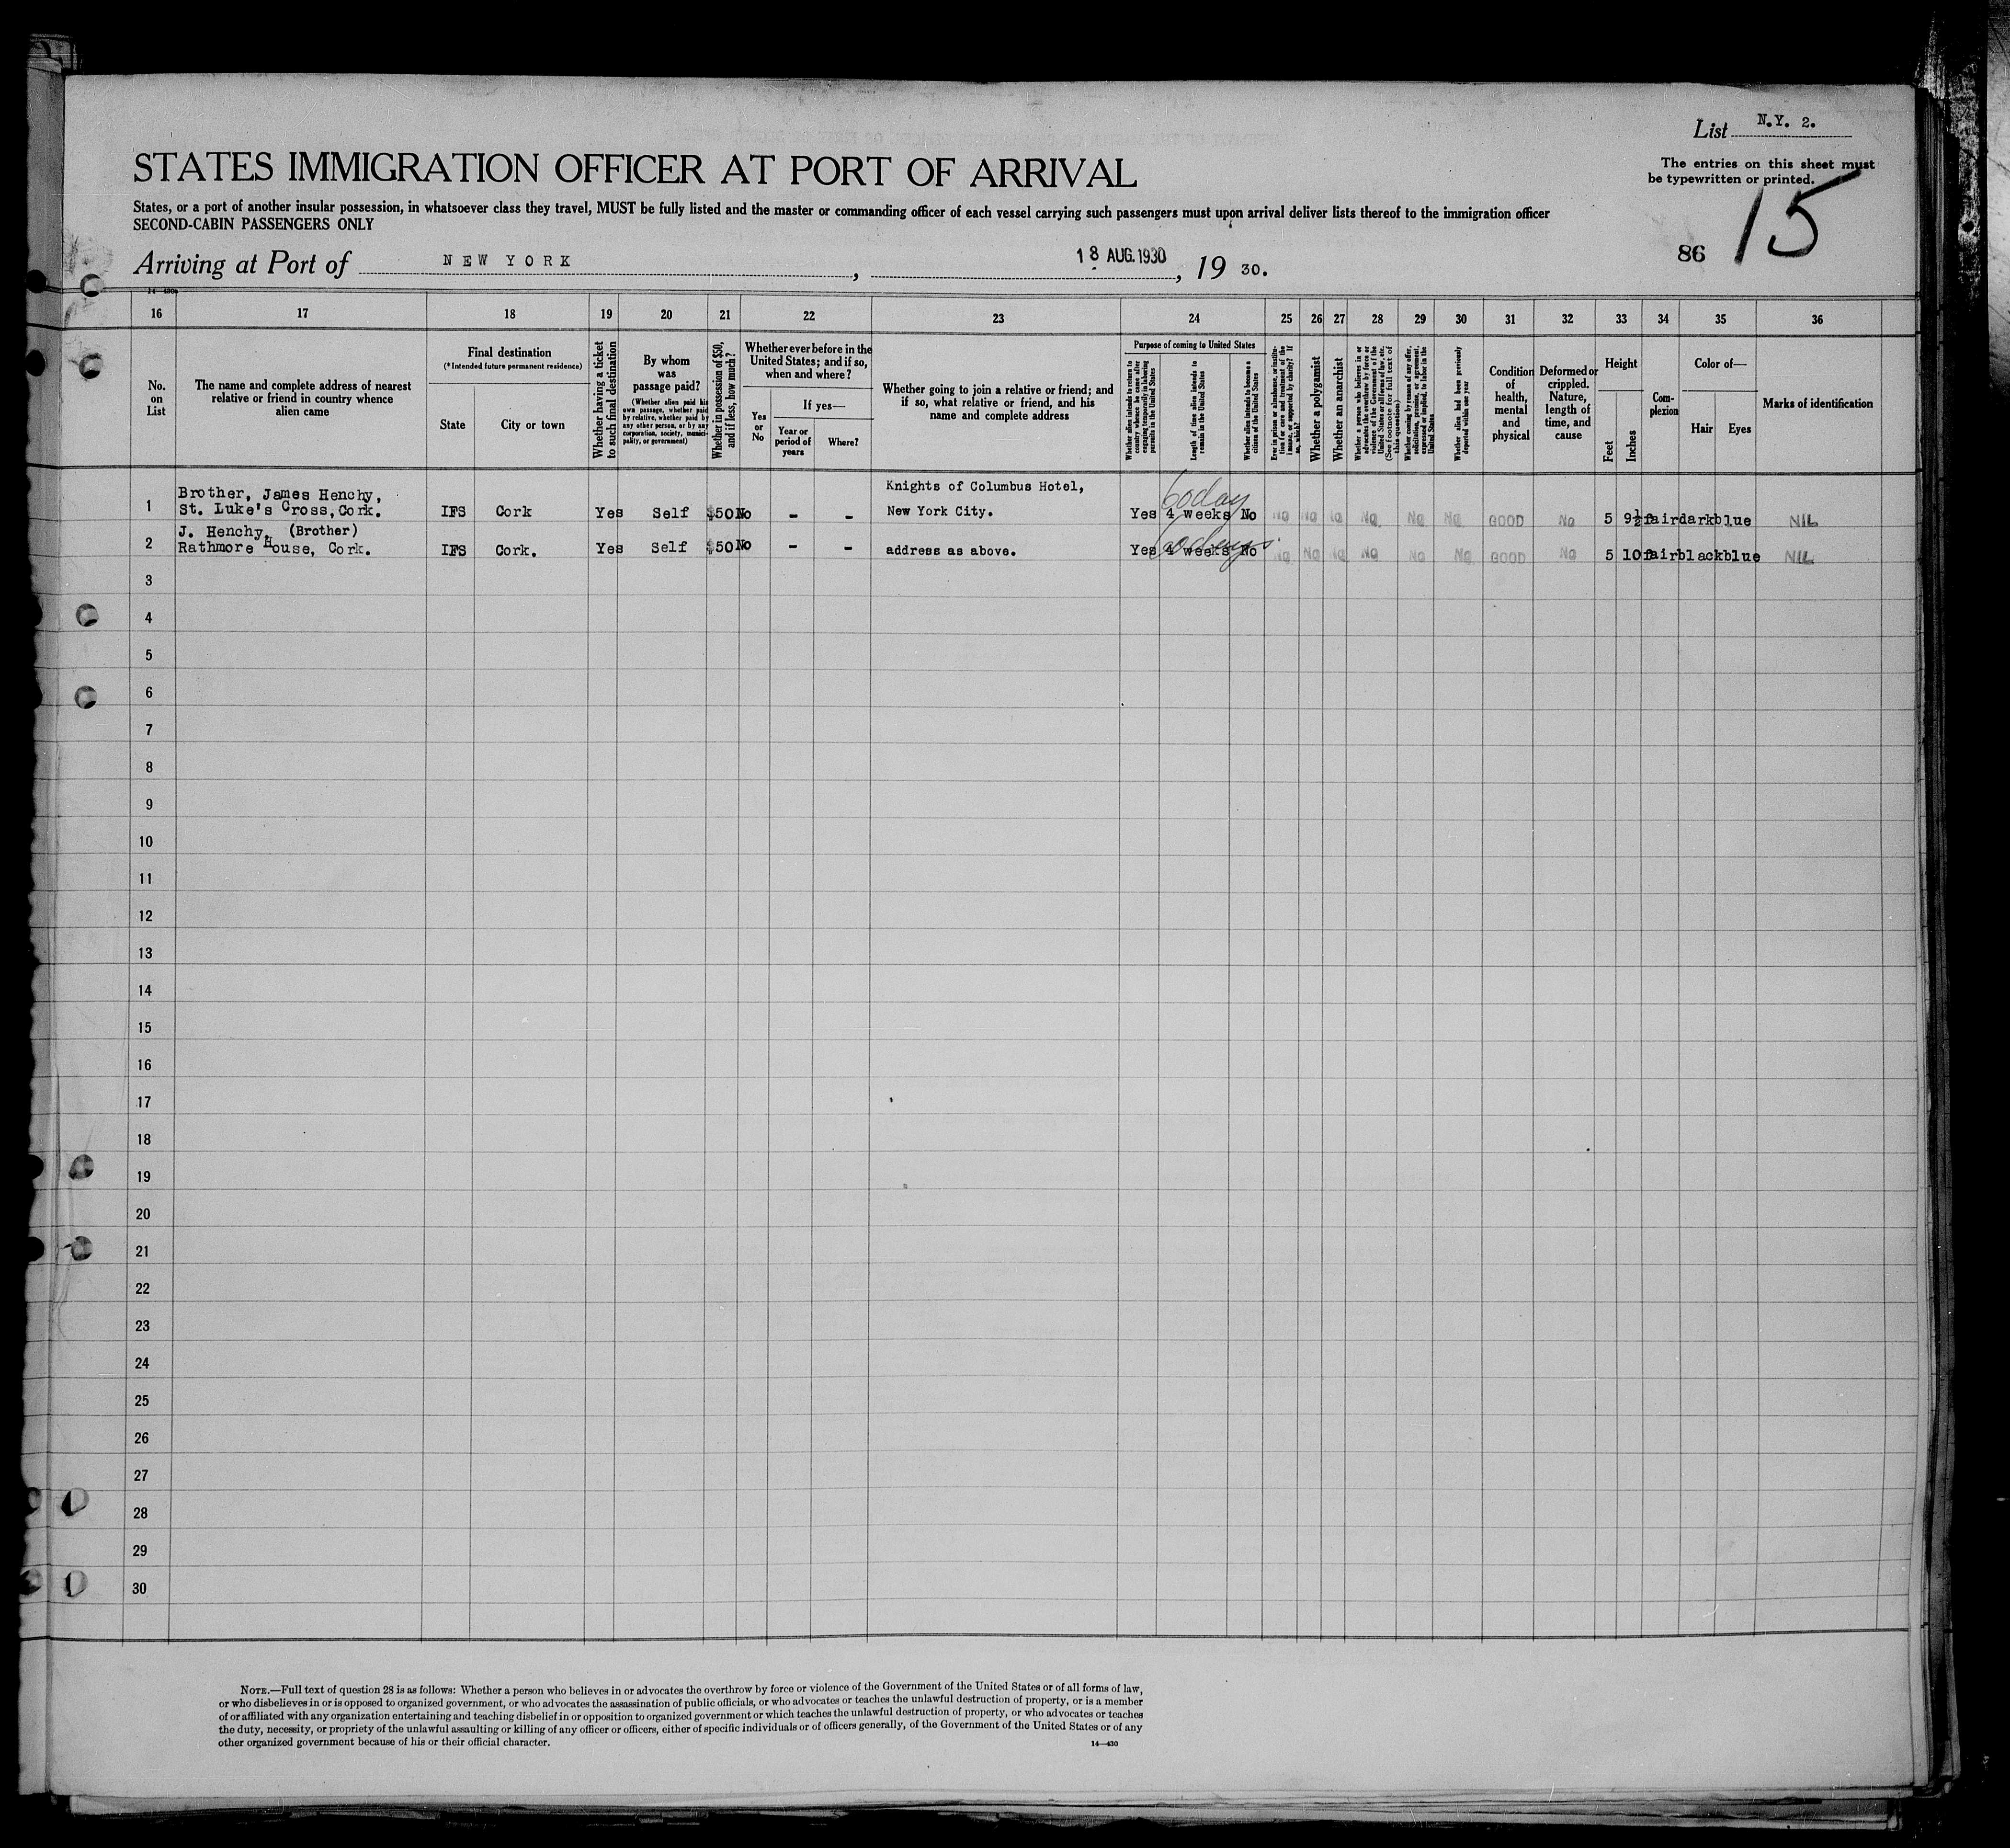 List N.Y. 2.
The entries on this sheet must
be typewritten or printed.
STATES IMMIGRATION OFFICER AT PORT OF ARRIVAL
States, or a port of another insular possession, in whatsoever class they travel, MUST be fully listed and the master or commanding officer of each vessel carrying such passengers must upon arrival deliver lists thereof to the immigration officer
SECOND-CABIN PASSENGERS ONLY
86 15
Arriving at Port of NEW YORK, 18 AUG. 1930, 19 30.
14—430
16 17 18 19 20 21 22 23 24 25 26 27 28 29 30 31 32 33 34 35 36
No. on List
The name and complete address of nearest relative or friend in country whence alien came
Final destination
(*Intended future permanent residence)
State
City or town
Whether having a ticket to such final destination
By whom was passage paid?
(Whether alien paid his own passage, whether paid by relative, whether paid by any other person, or by any corporation, society, municipality, or government)
Whether in possession of $50, and if less, how much?
Whether ever before in the United States; and if so, when and where?
Yes or No
If yes—
Year or period of years
Where?
Whether going to join a relative or friend; and if so, what relative or friend, and his name and complete address
Purpose of coming to United States
Whether alien intends to return to country whence he came after engaging temporarily in laboring pursuits in the United States
Length of time alien intends to remain in the United States
Whether alien intends to become a citizen of the United States
Ever in prison or almshouse, or institution for care and treatment of the insane, or supported by charity? If so, which?
Whether a polygamist
Whether an anarchist
Whether a person who believes in or advocates the overthrow by force or violence of the Government of the United States or all forms of law, etc. (See footnote for full text of this question)
Whether coming by reason of any offer, solicitation, promise, or agreement, expressed or implied, to labor in the United States
Whether alien had been previously deported within one year
Condition of health, mental and physical
Deformed or crippled. Nature, length of time, and cause
Height
Feet
Inches
Complexion
Color of—
Hair Eyes
Marks of identification
1 Brother, James Henchy, St. Luke's Cross, Cork. IFS Cork Yes Self $50 No - - Knights of Columbus Hotel, New York City. Yes 4 weeks 60 day No No No No No No No GOOD No 5 9½ fair dark blue NIL
2 J. Henchy, (Brother) Rathmore House, Cork. IFS Cork. Yes Self $50 No - - address as above. Yes 4 weeks 60 days No No No No No No No GOOD No 5 10 fair black blue NIL
3
4
5
6
7
8
9
10
11
12
13
14
15
16
17
18
19
20
21
22
23
24
25
26
27
28
29
30
NOTE.—Full text of question 28 is as follows: Whether a person who believes in or advocates the overthrow by force or violence of the Government of the United States or of all forms of law,
or who disbelieves in or is opposed to organized government, or who advocates the assassination of public officials, or who advocates or teaches the unlawful destruction of property, or is a member
of or affiliated with any organization entertaining and teaching disbelief in or opposition to organized government or which teaches the unlawful destruction of property, or who advocates or teaches
the duty, necessity, or propriety of the unlawful assaulting or killing of any officer or officers, either of specific individuals or of officers generally, of the Government of the United States or of any
other organized government because of his or their official character.
14—430